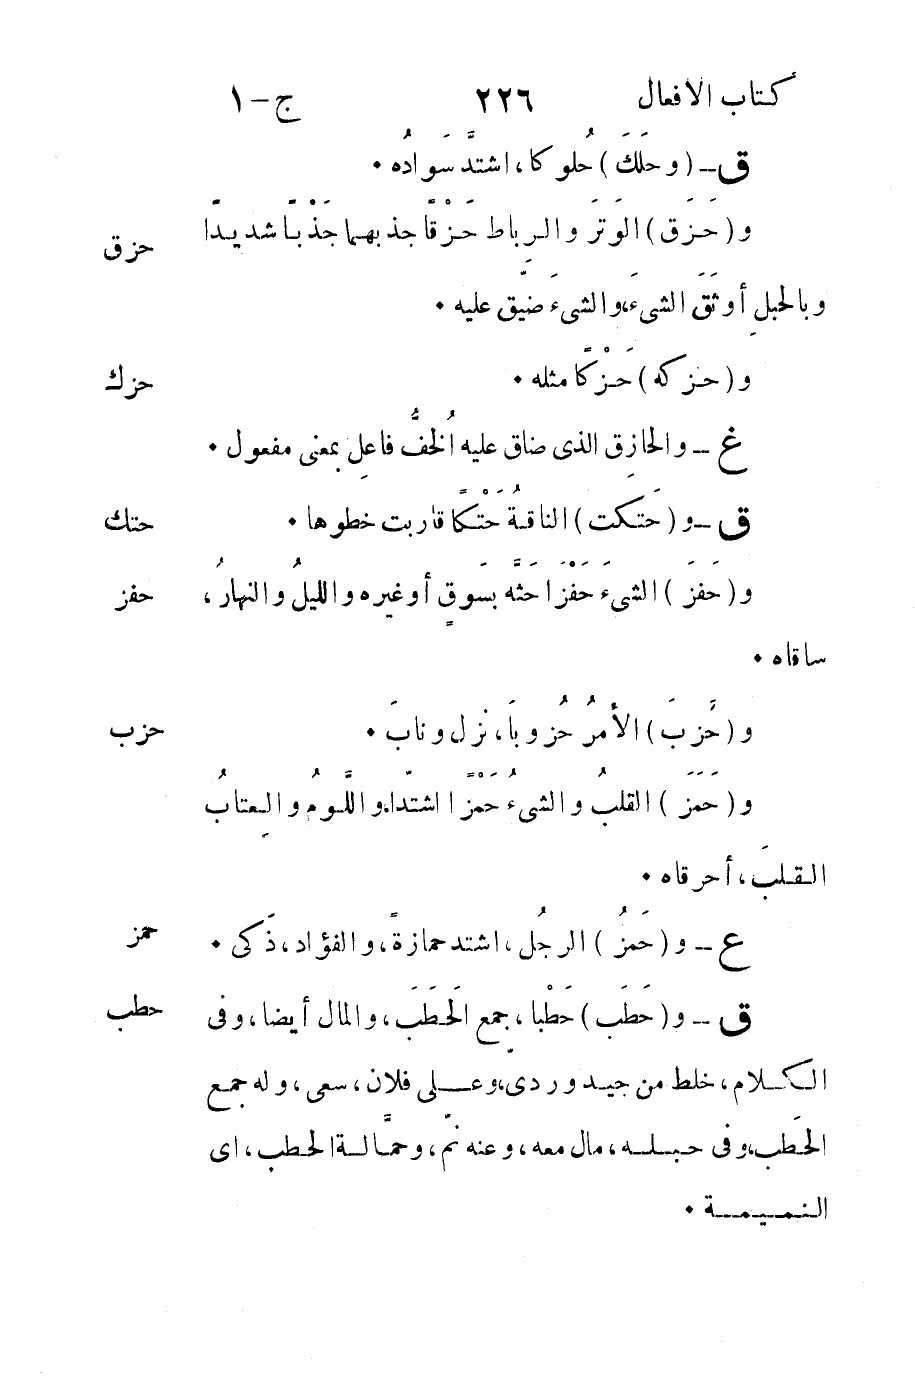 كتاب الافعال ٢٢٦ ج - ١
ق - ( و حَلَكَ ) حُلوكا ، اشتدَّ سَوادُه •
و ( حَزَق ) الوَتَرَ والرِباط حَزْقًا جذ بهما جَذْبًا شديدًا حزق
وبالحبلِ أوثَقَ الشىءَ، والشىءَ ضيّق عليه •
و ( حزكه ) حَزْكًا مثله • حزك
غ - والحازِق الذى ضاق عليه الُخفُّ فاعل بمعنى مفعول •
ق - و ( حَتكت ) الناقةُ حَتْكًا قاربت خطوها • حتك
و ( حَفَز ) الشىءَ حَفْزًا حثَّه بسَوقٍ أوغيره والليلُ والنهارُ ، حفز
ساقاه •
و ( حَزَّبَ ) الأمرُ حُزوبًا ، نَزل ونابَ • حزب
و ( حَمَزَ ) القلبُ والشىءُ حَمْزًا اشتدّا، واللَّومُ والعِتابُ
القلبَ ، أحرقاه •
ع - و ( حَمُزَ ) الرجُل ، اشتد حمازةً ، والفؤاد ، ذَكى • حمز
ق - و ( حَطَب ) حَطْبا ، جمع الَحطَبَ ، والمال أيضا ، وفى حطب
الكلام ، خلط من جيد وردىّ، وعلى فلان ، سعى ، وله جمع
الحَطب، وفى حبله ، مال معه ، وعنه نمّ ، وحمَّالة الحطب ، اى
النميمة •